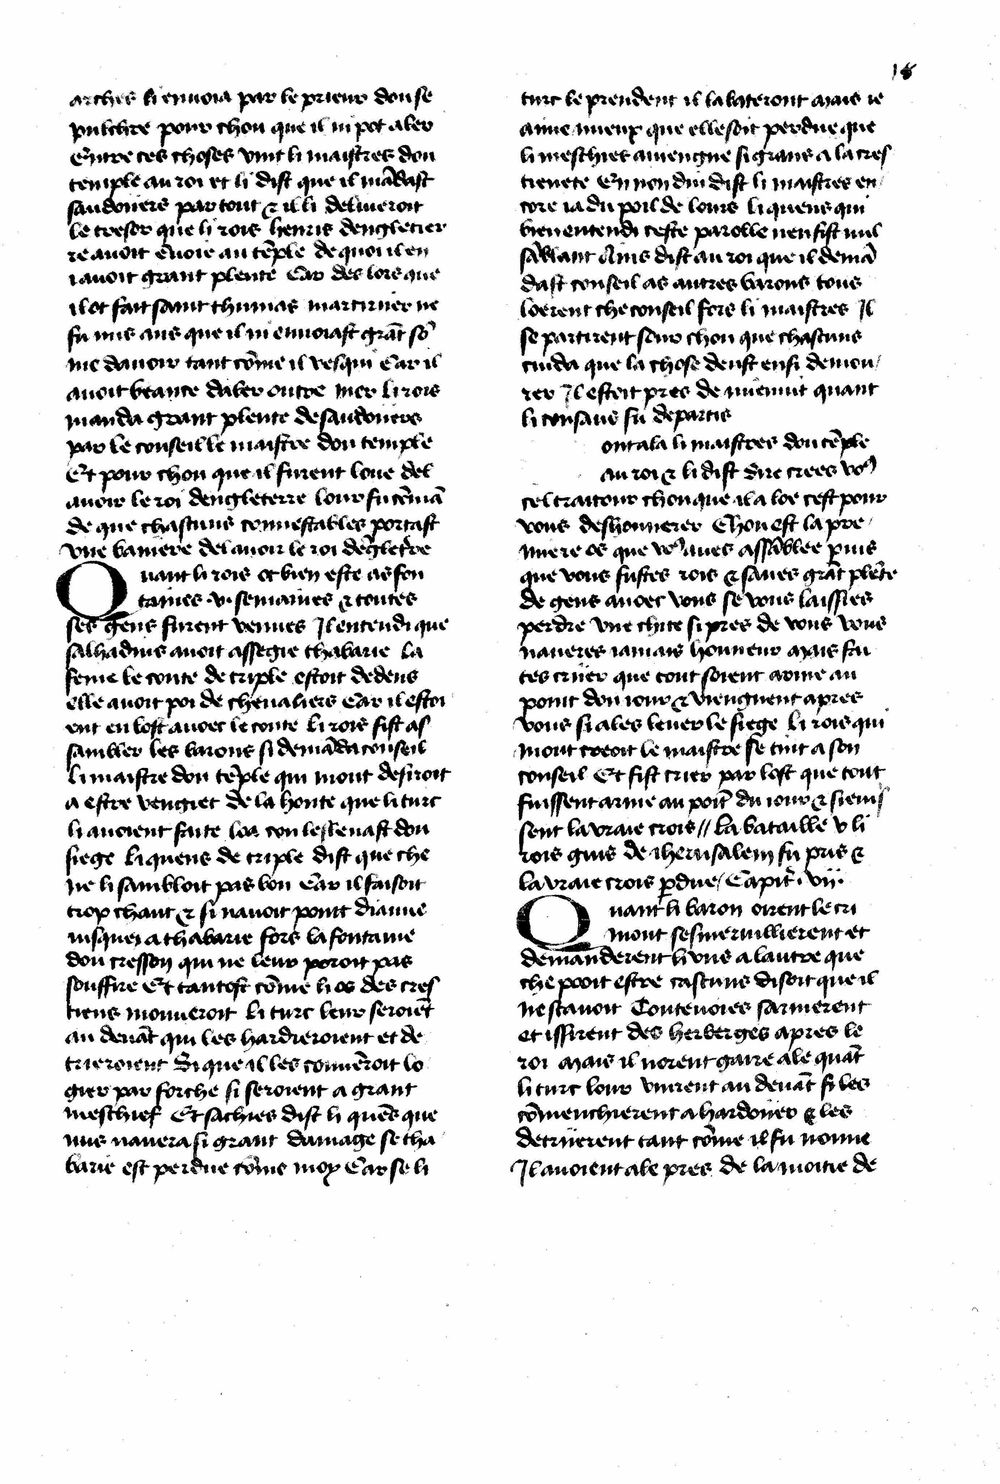 18
arches li enuoia par le prieur dou se
pulchre pour chou que il ni pot aler
Entre ces choses vint li maistres dou
temple au roi et li dist que il mādast
saudoiiers par tout & il li deliueroit
le tresor que li rois henris dengletier
re auoit ēuoie au tēple de quoi il en
i auoit grant plente Car des lors que
il ot fait saint thumas martiriier ne
fu nus ans que il ni enuoiast grāt sō
me dauoir tant cōme il vesqui Car il
auoit beance daler outre mer li rois
manda grant plente de saudoiiers
par le conseil le maistre dou temple
Et pour chou que il furent loue del
auoir le roi dengleterre lour fu cōmā
de que chascuns connestables portast
vne baniere del auoir le roi dēglet're
Quant li rois ot bien este as fon
taines .v. semaines & toutes
ses gens furent venues Il entendi que
salhadins auoit assegie thabarie La
feme le conte de triple estoit dedens
elle auoit poi de cheualiers Car il estoi
ent en lost auoec le conte li rois fist as
sambler les barons si demāda conseil
Li maistre dou tēple qui mout desiroit
a estre vengiet de la honte que li turc
li auoient faite loa con les leuast dou
siege Li quens de triple dist que che
ne li sambloit pas bon Car il faisoit
trop chaut & si nauoit point diauue
iusques a thabarie fors la fontaine
dou cresson qui ne leur poroit pas
souffire Et tantost cōme li os des cres
tiens mouueroit li turc leur seroiēt
au deuāt qui les hardieroient et de
trieroient Si que il les conuēroit lo
gier par forche si seroient a grant
meschief Et sachies dist li quēs que
nus nauera si grant damage se tha
barie est perdue cōme moy Car se li
turc le prendent il labateront mais ie
aime mieux que elle soit perdue que
li meschies auiengne si grans a la cres
tienete En non diu dist li maistres en
core ia du poil de lours li quens qui
bien entendi ceste parolle nen fist nul
sāblant Ains dist au roi que il demā
dast conseil as autres barons tous
loerent che conseil fors li maistres Il
se partirent sour chou que chascuns
cuida que la chose deust ensi demou
rer Il estoit pres de mienuit quant
li consaus fu departis
ont ala li maistres dou tēple
au roi & li dist sire crees vo9
cel traitour chou que il a loe cest pour
vous deshonnerer Chou est la pre
miere os que vo9 aues assāblee puis
que vous fustes rois & saues grāt plēte
de gens auoec vous se vous laissies
perdre vne chite si pres de vous vous
naueres iamais honneur mais fai
tes criier que tout soient arme au
point dou iour & viengnent apres
vous si ales leuer le siege li rois qui
mout creoit le maistre se tint a son
conseil Et fist crier par lost que tout
fuissent arme au poīt du iour & sieuis
sent la vraie crois // La bataille v li
rois guis de iherusalem fu pris &
la vraie crois p̱due / Capit'. vij.
Quant li baron oirent le cri
mout sesmeruillierent et
demanderent li vns a lautre que
che pooit estre cascuns disoit que il
ne sauoit Toutenoies sarmerent
et issirent des herberges apres le
roi mais il norent gaire ale quāt
li turc lour vinrent au deuāt si les
cōmenchierent a hardoiier & les
detriierent tant cōme il fu nonne
Il auoient ale pres de la moitie de